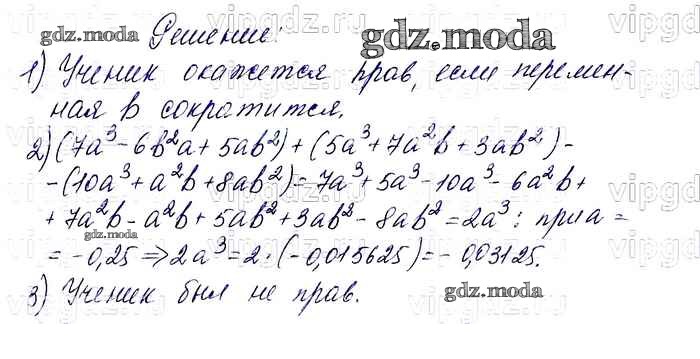 Решение:
gdz.moda
gdz.moda
1) Ученик окажется прав, если перемен-
ная в сократится.
2) (7a³ - 6b²a + 5ab²) + (5a³ + 7a²b + 3ab²) -
- (10a³ + a²b + 8ab²) = 7a³ + 5a³ - 10a³ - 6a²b +
+ 7a²b - a²b + 5ab² + 3ab² - 8ab² = 2a³; при a =
gdz.moda
= -0,25 ⇒ 2a³ = 2 · (-0,015625) = -0,03125.
3) Ученик был не прав.
gdz.moda